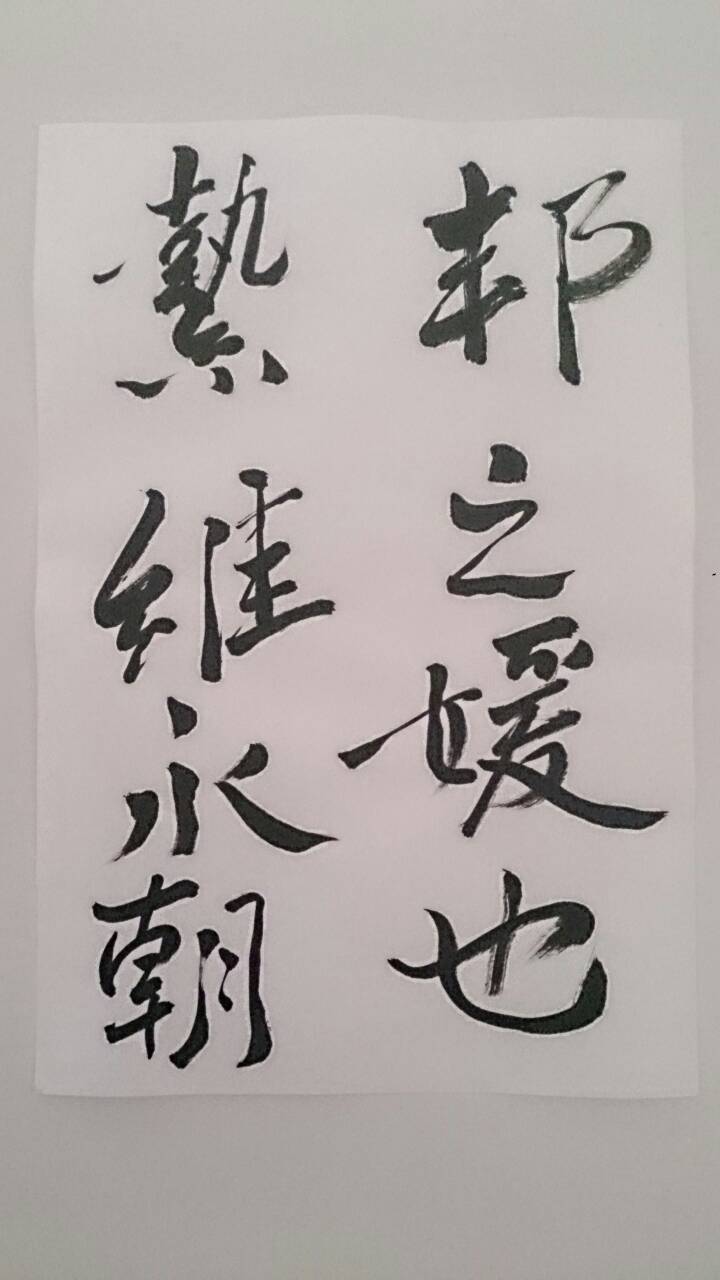 邦之媛也
縶維永朝